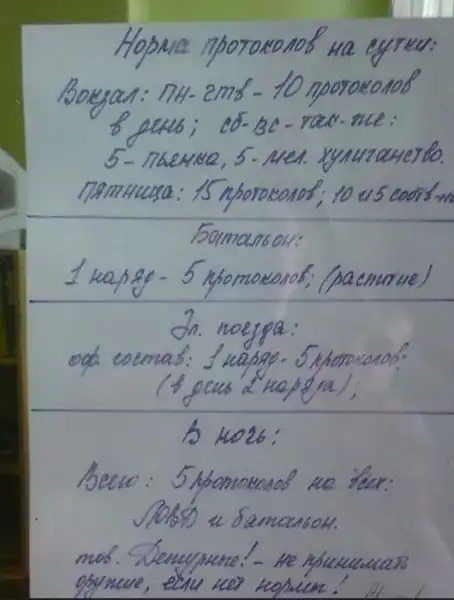 Норма протоколов на сутки:
Вокзал: пн-чтв - 10 протоколов
в день; сб-вс - так-же:
5 - пьянка, 5 - мел. хулиганство.
пятница: 15 протоколов; 10 и 5 соотв-но
Батальон:
1 наряд - 5 протоколов; (распитие)
Эл. поезда:
оф. состав: 1 наряд - 5 протоколов;
(в день 2 наряда);
В ночь:
Всего: 5 протоколов на всех:
ЛОВД и батальон.
тов. Дежурные! - не принимать
оружие, если нет нормы!